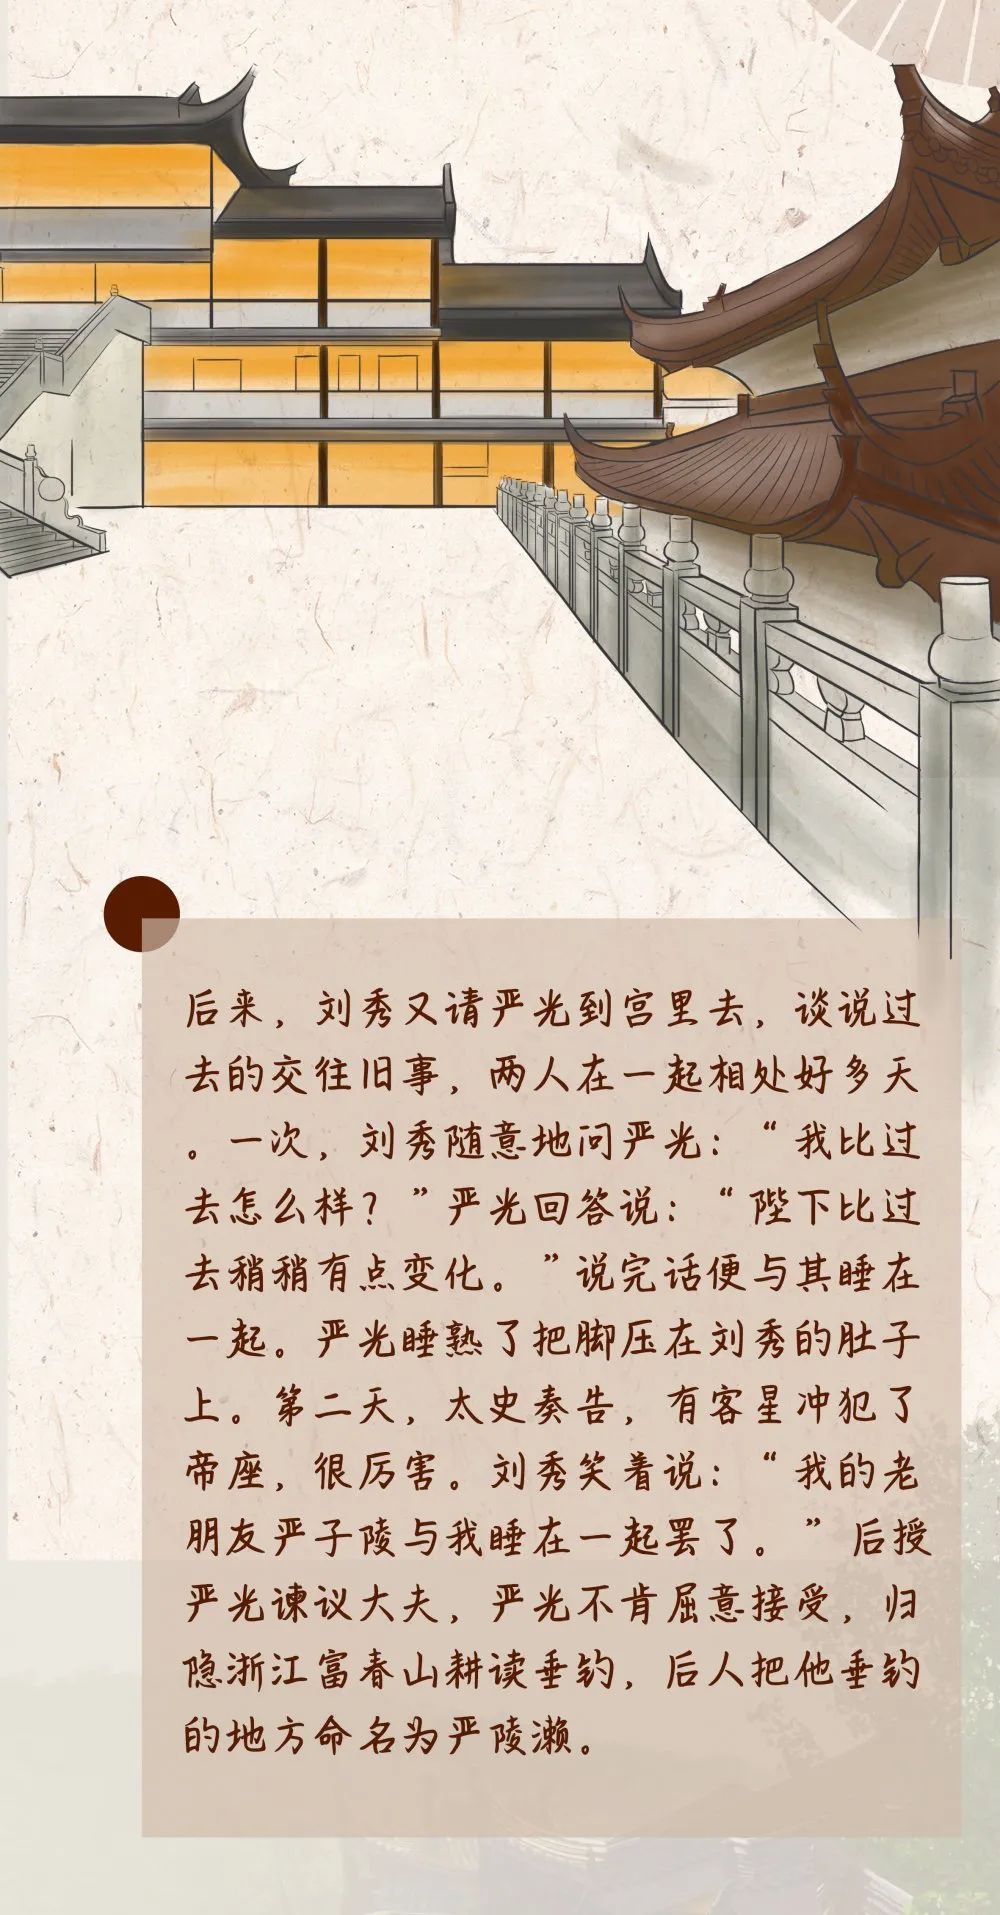 后来，刘秀又请严光到宫里去，谈说过
去的交往旧事，两人在一起相处好多天
。一次，刘秀随意地问严光：“我比过
去怎么样？”严光回答说：“陛下比过
去稍稍有点变化。”说完话便与其睡在
一起。严光睡熟了把脚压在刘秀的肚子
上。第二天，太史奏告，有客星冲犯了
帝座，很厉害。刘秀笑着说：“我的老
朋友严子陵与我睡在一起罢了。”后授
严光谏议大夫，严光不肯屈意接受，归
隐浙江富春山耕读垂钓，后人把他垂钓
的地方命名为严陵濑。